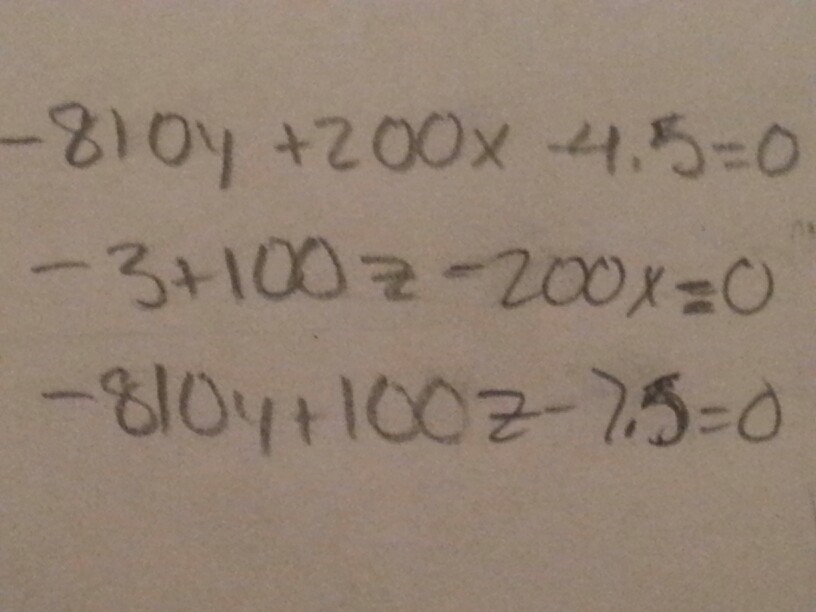 -810y +200x -4.5=0
-3+100z-200x=0
-810y+100z-7.5=0